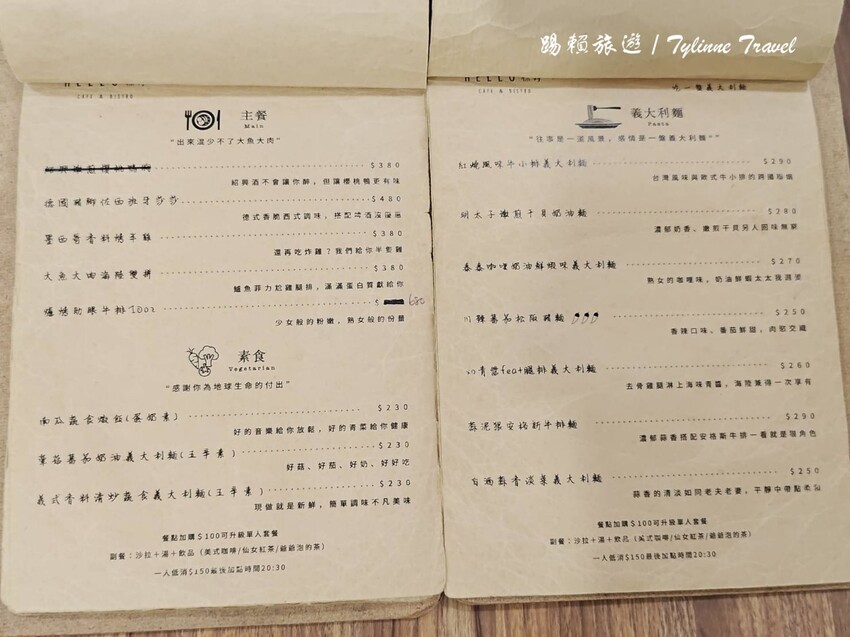 踢賴旅遊 / Tylinne Travel
HELLO
CAFE & BISTRO
主餐
Main
"出來混少不了大魚大肉"
$380
紹興酒不會讓你醉,但讓櫻桃鴨更有味
德國豬腳佐西班牙莎莎 $480
德式香脆西式調味,搭配啤酒沒極限
墨西哥香料烤半雞 $380
還再吃炸雞?我們給你半隻雞
大魚大肉海陸雙拼 $380
鱸魚菲力尬雞腿排,滿滿蛋白質獻給你
爐烤肋眼牛排10oz $ 680
少女般的粉嫩,熟女般的份量
素食
Vegetarian
"感謝你為地球生命的付出"
南瓜蔬食燉飯(蛋奶素) $230
好的音樂給你放鬆,好的青菜給你健康
蕈菇蕃茄奶油義大利麵(五辛素) $230
好菇、好茄、好奶、好好吃
義式香料清炒蔬食義大利麵(五辛素) $230
現做就是新鮮,簡單調味不凡美味
餐點加購$100可升級單人套餐
副餐:沙拉+湯+飲品(美式咖啡/仙女紅茶/爺爺泡的茶)
一人低消$150最後加點時間20:30
吃一盤義大利麵
義大利麵
Pasta
"往事是一道風景,感情是一盤義大利麵"
紅燒風味牛小排義大利麵 $290
台灣風味與歐式牛小排的跨邊聯姻
明太子嫩煎干貝奶油麵 $280
濃郁奶香、嫩煎干貝另人回味無窮
泰泰咖哩奶油鮮蝦味義大利麵 $270
熟女的咖哩味,奶油鮮蝦太太我還要
川辣蕃茄松阪豬麵 $250
香辣口味、番茄鮮甜,肉慾交織
幻青醬feat腿排義大利麵 $260
去骨雞腿淋上海味青醬,海陸兼得一次享有
蒜泥狠安格斯牛排麵 $290
濃郁蒜香搭配安格斯牛排一看就是狠角色
白酒蒜香淡菜義大利麵 $250
蒜香的清淡如同老夫老妻,平靜中帶點老派
餐點加購$100可升級單人套餐
副餐:沙拉+湯+飲品(美式咖啡/仙女紅茶/爺爺泡的茶)
一人低消$150最後加點時間20:30